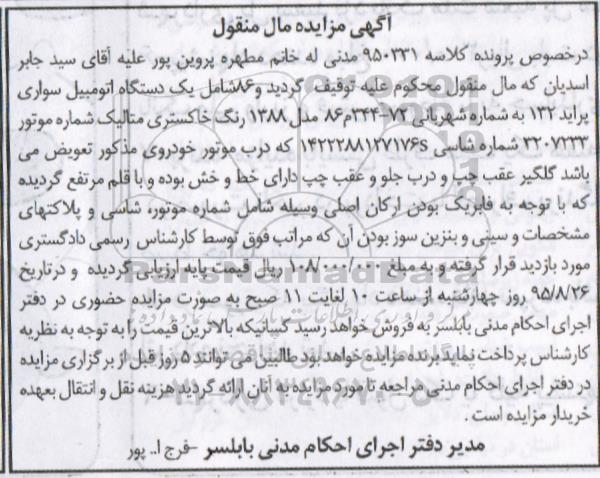 آگهی مزایده مال منقول
درخصوص پرونده کلاسه ۹۵۰۳۳۱ مدنی له خانم مطهره پروین پور علیه آقای سید جابر
اسدیان که مال منقول محکوم علیه توقیف گردید و۸۶شامل یک دستگاه اتومبیل سواری
پراید ۱۳۲ به شماره شهربانی۷۲-۳۴۴م۸۶ مدل۱۳۸۸ رنگ خاکستری متالیک شماره موتور
۳۲۰۷۲۳۳ شماره شاسی ۱۴۲۲۲۸۸۱۲۷۱۷۶s که درب موتور خودروی مذکور تعویض می
باشد گلگیر عقب چپ و درب جلو و عقب چپ دارای خط و خش بوده و با قلم مرتفع گردیده
که با توجه به فابریک بودن ارکان اصلی وسیله شامل شماره موتور، شاسی و پلاکتهای
مشخصات و سینی و بنزین سوز بودن آن که مراتب فوق توسط کارشناس رسمی دادگستری
مورد بازدید قرار گرفته و به مبلغ ۱۰۸/۰۰۰/۰۰۰ ریال قیمت پایه ارزیابی گردیده و درتاریخ
۹۵/۸/۲۶ روز چهارشنبه از ساعت ۱۰ لغایت ۱۱ صبح به صورت مزایده حضوری در دفتر
اجرای احکام مدنی بابلسر به فروش خواهد رسید کسانیکه بالاترین قیمت را به توجه به نظریه
کارشناس پرداخت نماید برنده مزایده خواهد بود طالبین می توانند ۵ روز قبل از برگزاری مزایده
در دفتر اجرای احکام مدنی مراجعه تا مورد مزایده به آنان ارائه گردید هزینه نقل و انتقال بعهده
خریدار مزایده است.
مدیر دفتر اجرای احکام مدنی بابلسر -فرج ا.. پور